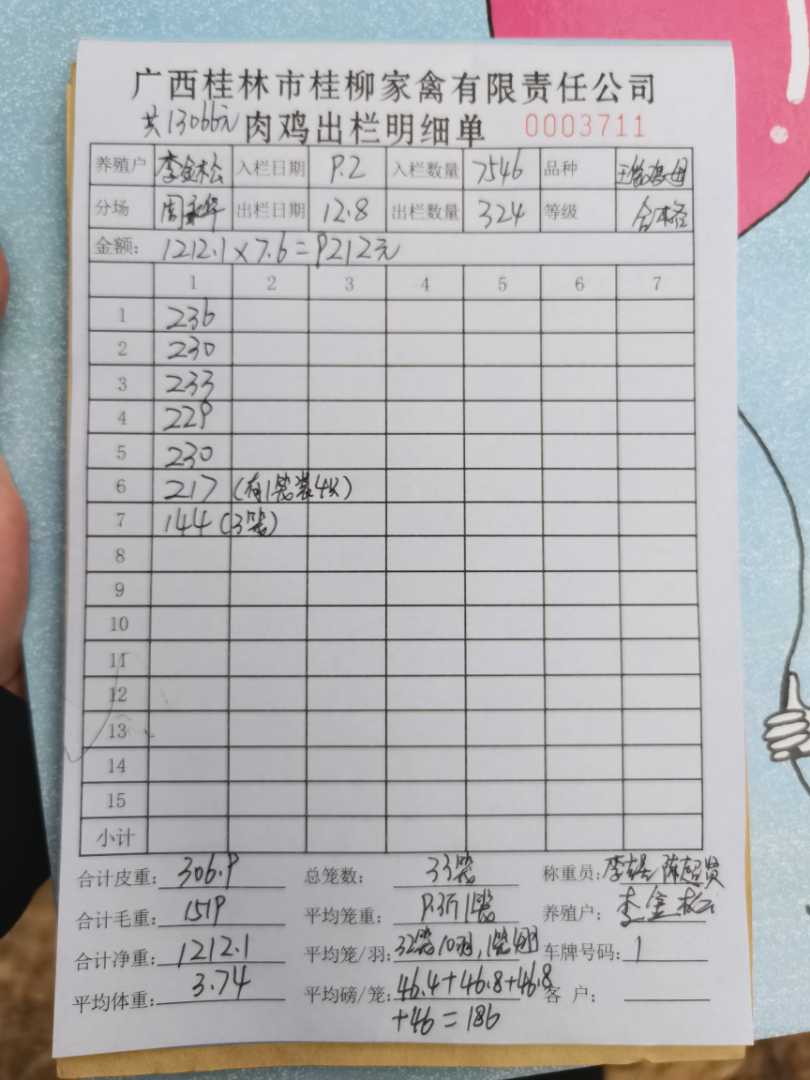 广西桂林市桂柳家禽有限责任公司
共13066元 肉鸡出栏明细单 0003711
养殖户 李金松 入栏日期 9.2 入栏数量 7546 品种 鸡母
分场 周永华 出栏日期 12.8 出栏数量 324 等级 合格
金额: 1212.1×7.6=9212元
1 2 3 4 5 6 7
1 236
2 230
3 233
4 229
5 230
6 217 (有1笼装4只)
7 144 (3笼)
8
9
10
11
12
13
14
15
小计
合计皮重: 306.9 总笼数: 33笼 称重员: 陈超贤
合计毛重: 1519 平均笼重: 9.3斤/笼 养殖户: 李金松
合计净重: 1212.1 平均笼/羽: 32笼10羽,1笼4羽 车牌号码: 1
平均体重: 3.74 平均磅/笼: 46.4+46.8+46.8 客 户:
+46=186